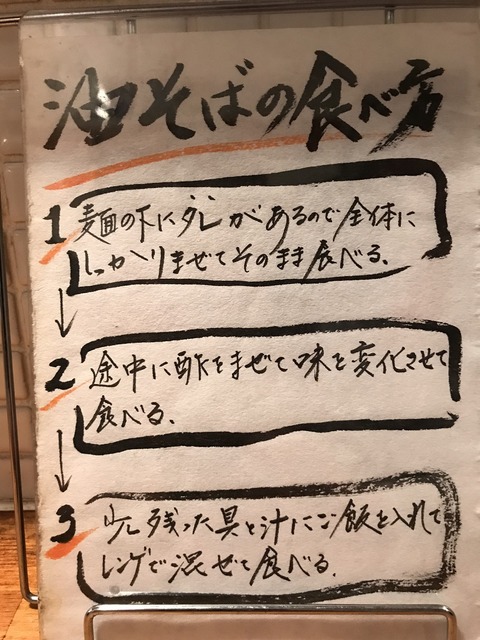 油そばの食べ方
1 麺の下にダレがあるので全体に
しっかりまぜてそのまま食べる。
2 途中に酢をまぜて味を変化させて
食べる。
3 少し残った具と汁にご飯を入れて
レンゲで混ぜて食べる。